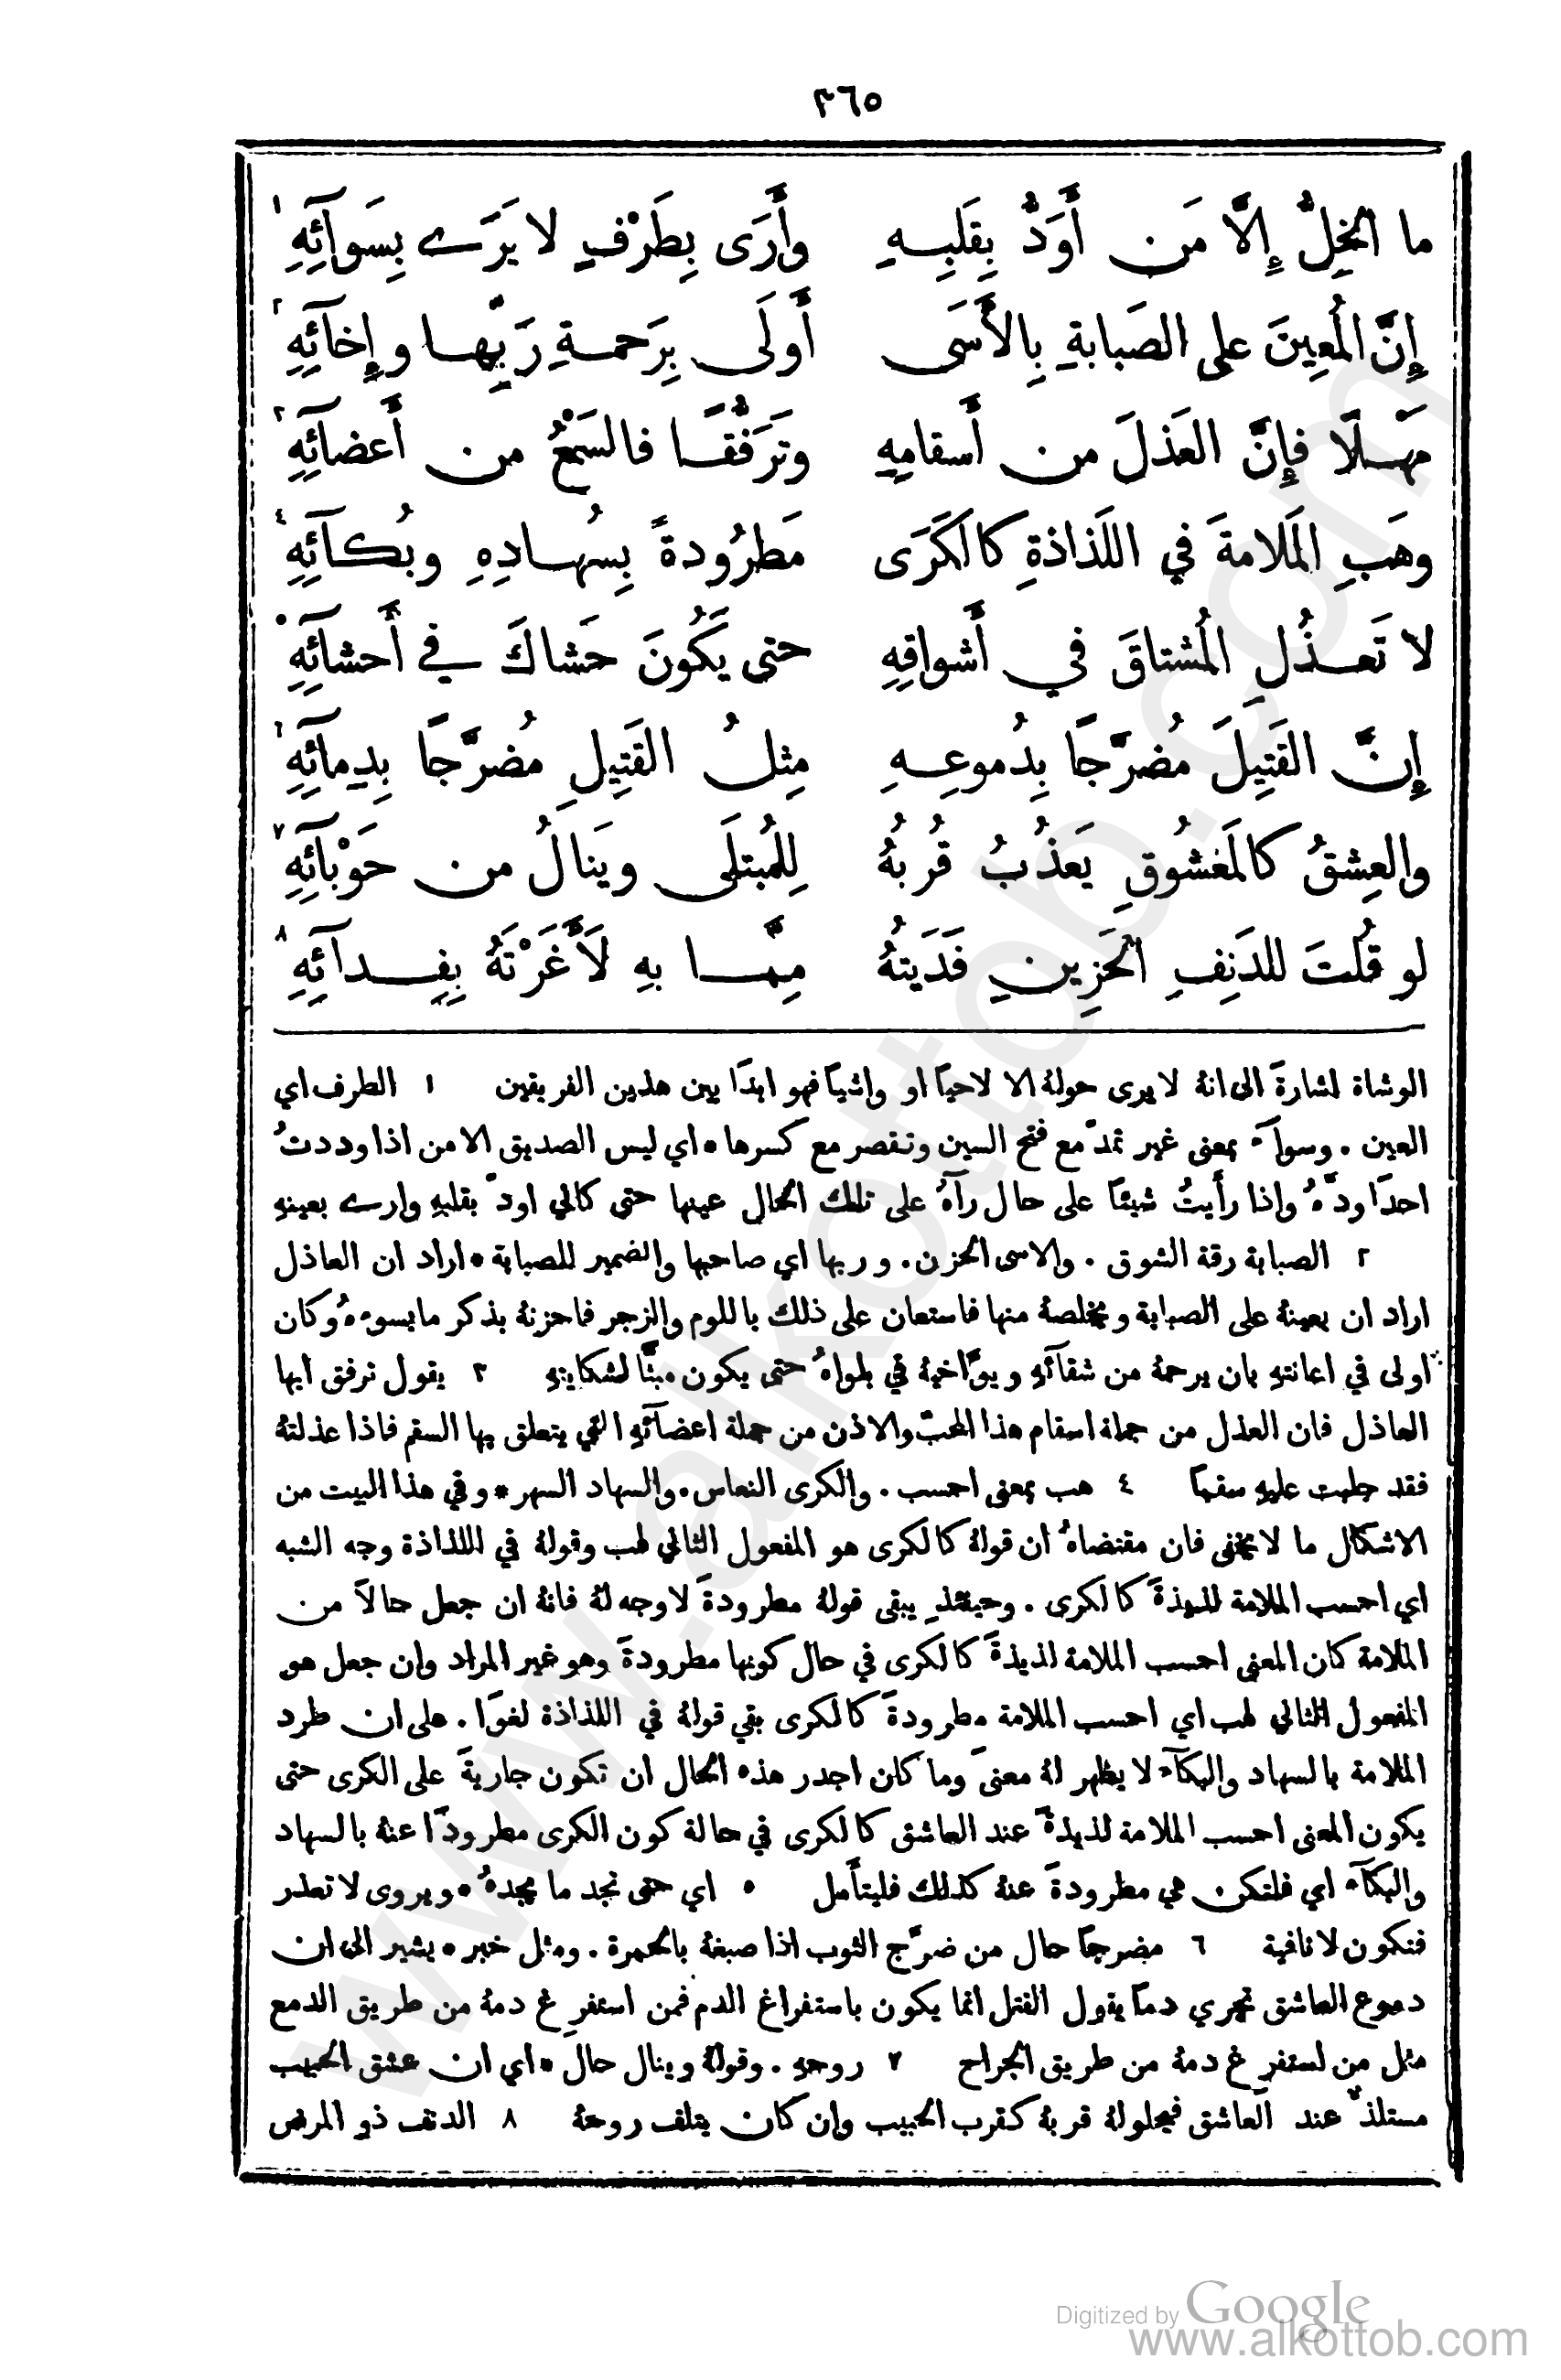 ٣٦٥
ما الخِلُّ إِلَّا مَن أَوَدُّ بِقَلبِهِ وأَرَى بِطَرْفٍ لا يَرَى بِسَوآئِهِ ١
إِنَّ المُعِينَ على الصَبابةِ بِالأَسَى أَولَى بِرَحمةِ رَبِّها وإِخآئِهِ ٢
مَهلًا فإِنَّ العَذلَ من أَسقامِهِ وتَرَفُّقًا فالسَمْعُ من أَعضآئِهِ ٣
وهَبِ المَلامةَ في اللَذاذةِ كالكَرَى مَطرُودةً بِسُهادِهِ وبُكآئِهِ ٤
لا تَعذُلِ المُشتاقَ في أَشواقِهِ حتى يَكُونَ حَشاكَ في أَحشآئِهِ ٥
إِنَّ القَتِيلَ مُضرَّجًا بِدُموعِهِ مِثلُ القَتِيلِ مُضرَّجًا بِدِمآئِهِ ٦
والعِشقُ كالمَعشُوقِ يَعذُبُ قُربُهُ لِلمُبتلَى ويَنالُ من حَوْبآئِهِ ٧
لو قُلتَ للدَنِفِ الحَزِينِ فَدَيتهُ مِمَّا بهِ لَأَغَرْتَهُ بِفِدآئِهِ ٨
الوشاة اشارةً الى انهُ لا يرى حولهُ الا لاحيًا او واشيًا فهو ابدًا بين هذين الفريقين ١ الطرف اي
العين . وسوآء بمعنى غير تمدّ مع فتح السين وتقصر مع كسرها • اي ليس الصديق الا من اذا وددتُ
احدًا ودّهُ واذا رأيتُ شيئًا على حال رآهُ على تلك الحال عينها حتى كاني اودّ بقلبهِ وارى بعينهِ
٢ الصبابة رقة الشوق . والاسى الحزن . وربها اي صاحبها والضمير للصبابة • اراد ان العاذل
اراد ان يعينهُ على الصبابة ويخلصهُ منها فاستعان على ذلك باللوم والزجر فاحزنهُ بذكر ما يسوءهُ وكان
اولى في اعانتهِ بان يرحمهُ من شقآئهِ ويوَّاخيهُ في بلواهُ حتى يكون مبثًّا لشكايتهِ ٣ يقول ترفق ايها
العاذل فان العذل من جملة اسقام هذا المحبّ والاذن من جملة اعضآئهِ التي يتعلق بها السقم فاذا عذلتهُ
فقد جلبت عليهِ سقمًا ٤ هب بمعنى احسب . والكرى النعاس . والسهاد السهر • وفي هذا البيت من
الاشكال ما لا يخفى فان مقتضاهُ ان قولهُ كالكرى هو المفعول الثاني لهب وقولهُ في اللذاذة وجه الشبه
اي احسب الملامة لذيذةً كالكرى . وحينئذٍ يبقى قولهُ مطرودةً لا وجه لهُ فانهُ ان جعل حالًا من
الملامة كان المعنى احسب الملامة لذيذةً كالكرى في حال كونها مطرودةً وهو غير المراد وان جعل هو
المفعول الثاني لهب اي احسب الملامة مطرودةً كالكرى بقي قولهُ في اللذاذة لغوًا . على ان طرد
الملامة بالسهاد والبكآء لا يظهر لهُ معنًى وما كان اجدر هذه الحال ان تكون جاريةً على الكرى حتى
يكون المعنى احسب الملامة لذيذةً عند العاشق كالكرى في حالة كون الكرى مطرودًا عنهُ بالسهاد
والبكآء اي فلتكن هي مطرودةً عنهُ كذلك فليتأمل ٥ اي حتى تجد ما يجدهُ • ويروى لا تعذر
فتكون لا نافية ٦ مضرجًا حال من ضرّج الثوب اذا صبغهُ بالحمرة . ومثل خبر • يشير الى ان
دموع العاشق تجري دمًا يقول القتل انما يكون باستفراغ الدم فمن استفرِغ دمهُ من طريق الدمع
مثل من استفرِغ دمهُ من طريق الجراح ٧ روحهِ . وقولهُ وينال حال • اي ان عشق الحبيب
مستلذٌّ عند العاشق فيحلو لهُ قربهُ كقرب الحبيب وان كان يتلف روحهُ ٨ الدنف ذو المرض
Digitized by Google
www.alkottob.com
www.alkottob.com